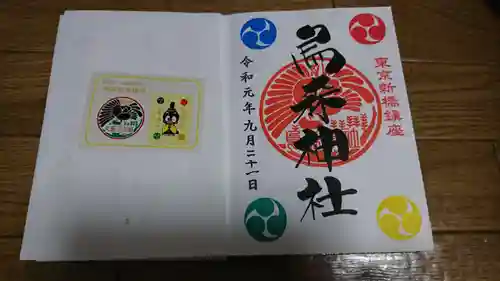 東京新橋鎮座
烏森神社
令和元年九月二十一日